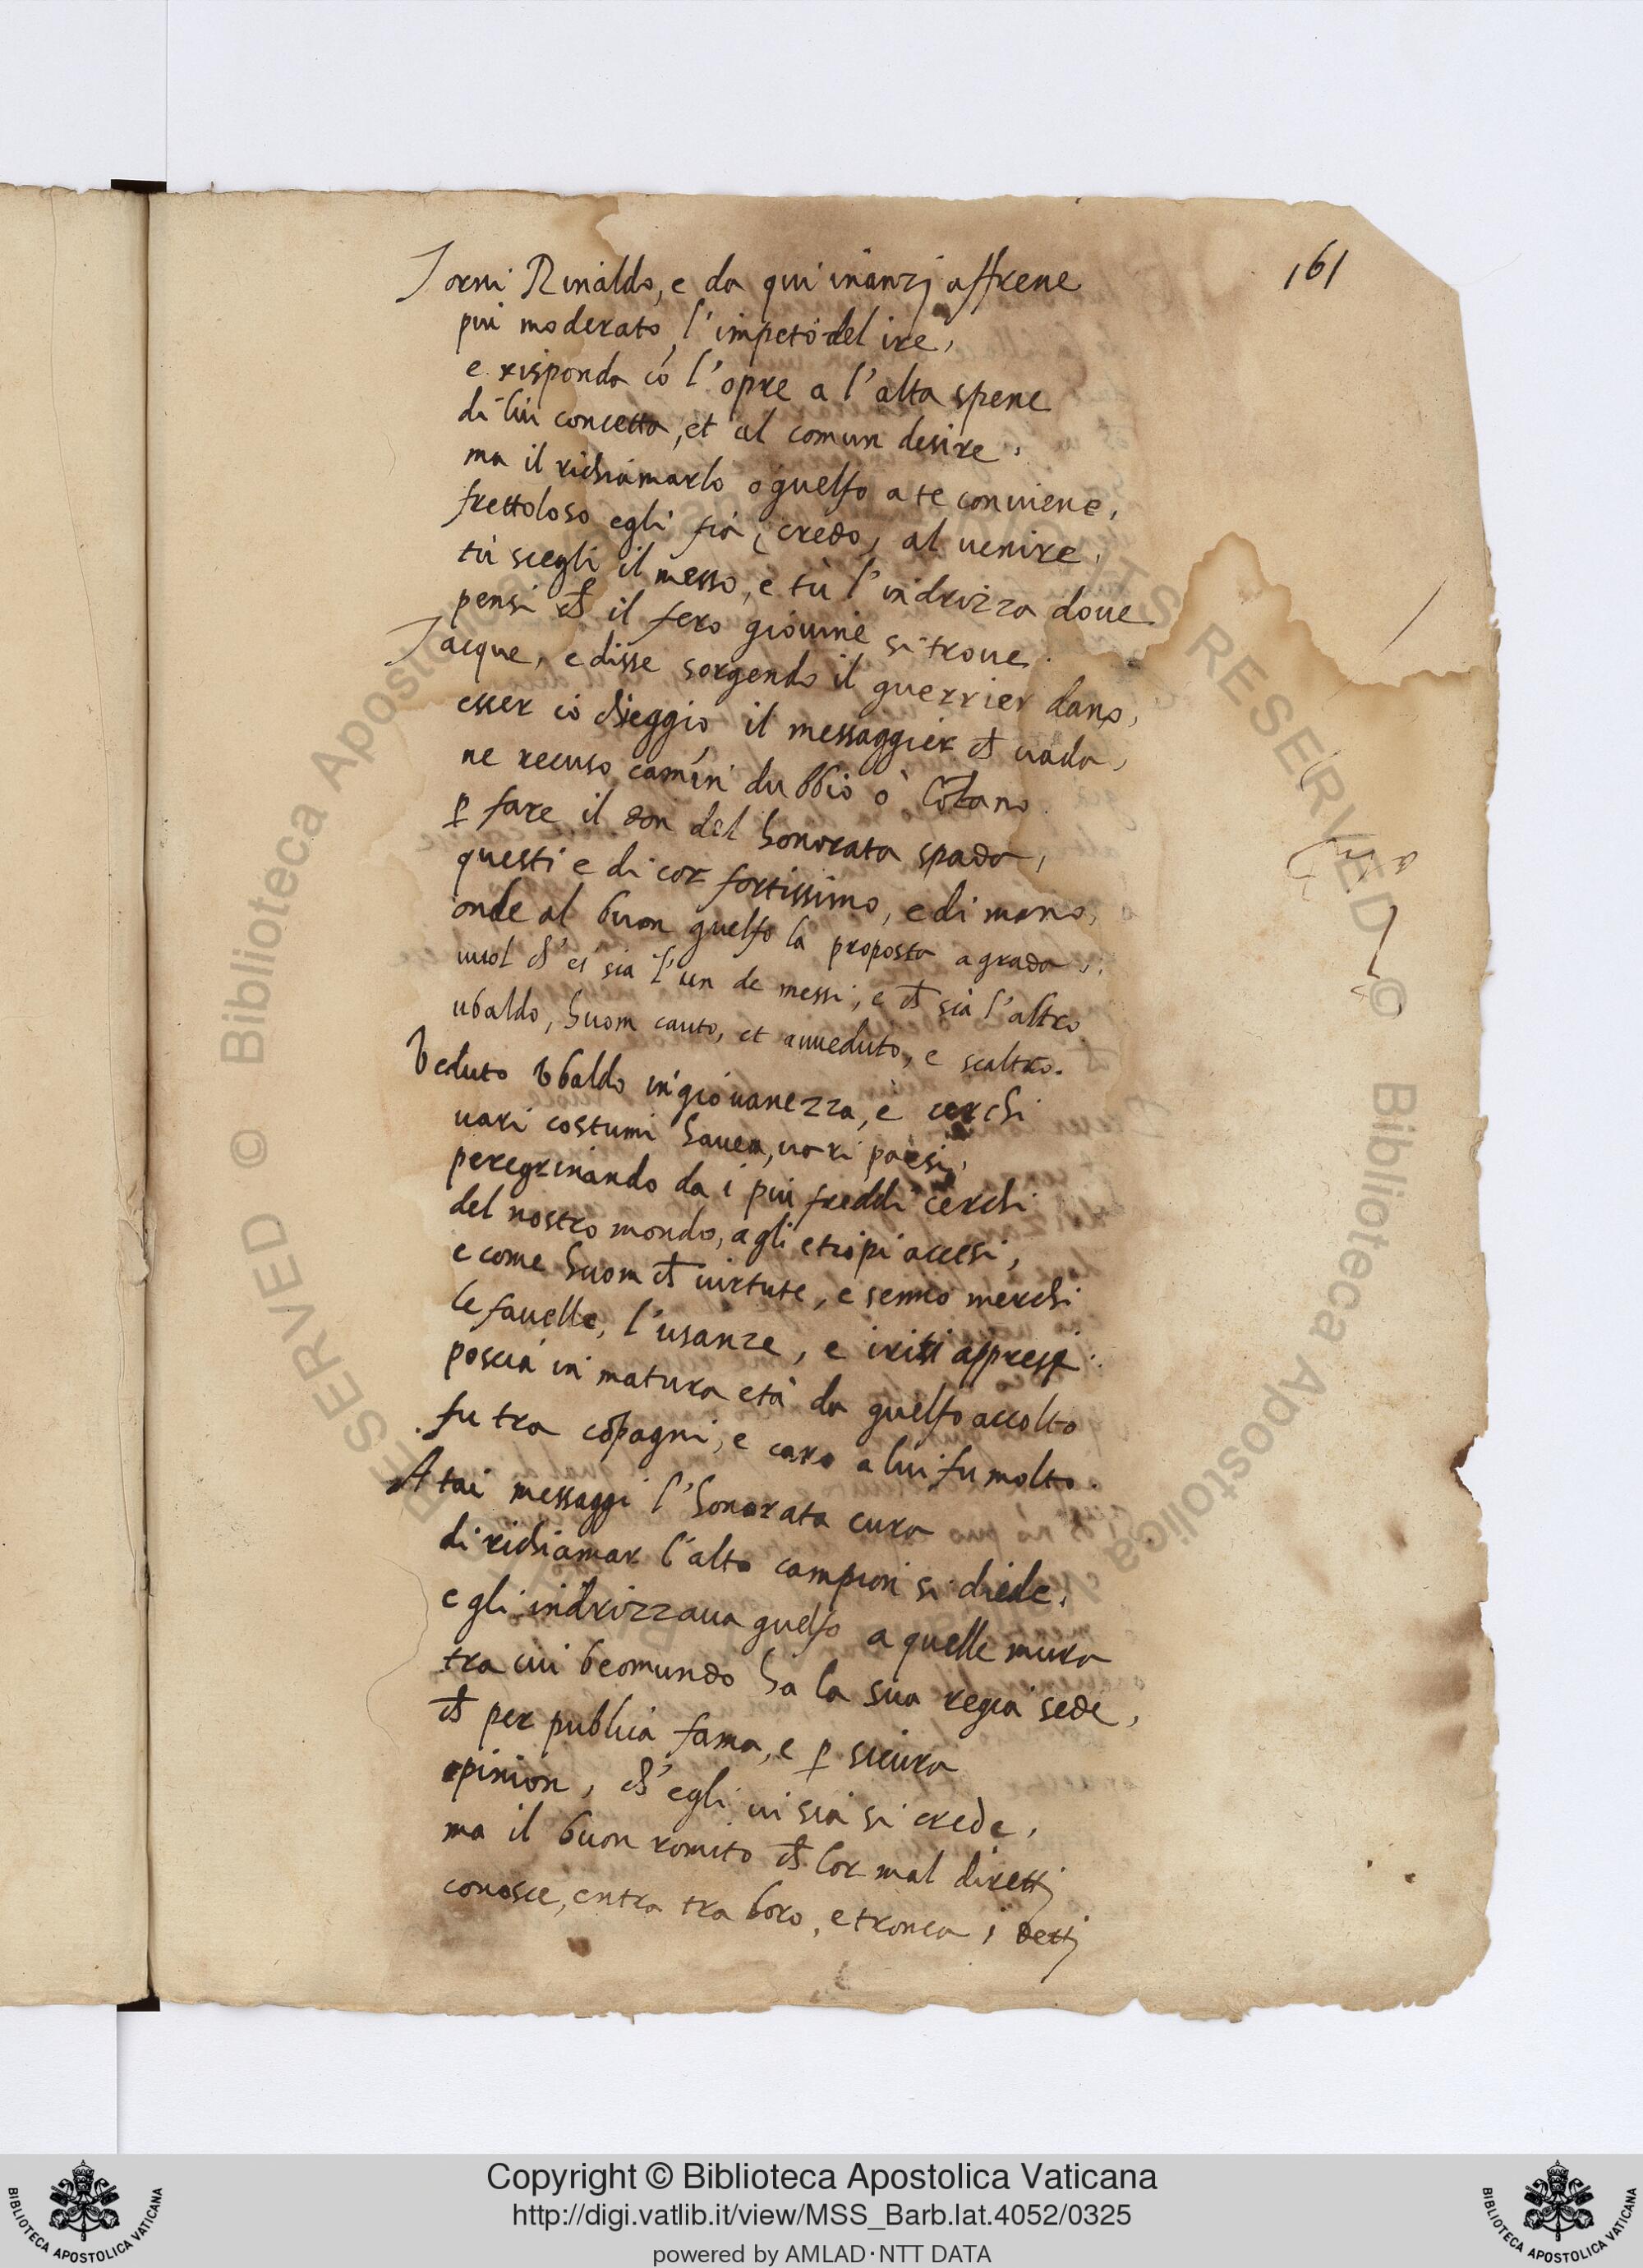 161
Torni Rinaldo, e da qui inanzi affrene
piu moderato l'impeto del ire,
e risponda cō l'opre a l'alta spene
di lui concetta, et al comun desire,
ma il richiamarlo ò guelfo a te conuiene,
frettoloso egli fia (credo) al uenire,
tù scegli il messo, e tù l'indrizza doue
pensi ch̄ il fero giouine si troue.
Tacque, e disse sorgendo il guerrier dano,
esser io chieggio il messaggier ch̄ uada,
ne recuso camin dubbio ò lōtano
p̱ fare il don del honorata spada,
questi e di cor fortissimo, e di mano,
onde al buon guelfo la proposta agrada,
uuol ch'ei sia l'un de messi, e ch̄ sia l'altro
ubaldo, huom cauto, et aueduto, e scaltro.
Veduto Vbaldo in giouanezza, e cerchi
uari costumi hauea, uari paesi,
peregrinando da i piu freddi cerchi
del nostro mondo, a gli etiopi accesi,
e come huom ch̄ uirtute, e senno merchi
le fauelle, l'usanze, e i riti appresi.
poscia in matura età da guelfo accolto
fu tra cōpagni, e caro a lui fu molto.
A tai messaggi l'honorata cura
di richiamar l'alto campion si diede,
e gli indrizzaua guelfo a quelle mura
tra cui beomundo ha la sua regia sede,
ch̄ per publica fama, e p̱ sicura
opinion, ch'egli ui sia si crede,
ma il buon romito ch̄ lor mal diretti
conosce, entra tra loro, e tronca i detti
RIGHTS RESERVED © Biblioteca Apostolica Vaticana
Copyright © Biblioteca Apostolica Vaticana
http://digi.vatlib.it/view/MSS_Barb.lat.4052/0325
powered by AMLAD·NTT DATA
BIBLIOTECA APOSTOLICA VATICANA
BIBLIOTECA APOSTOLICA VATICANA